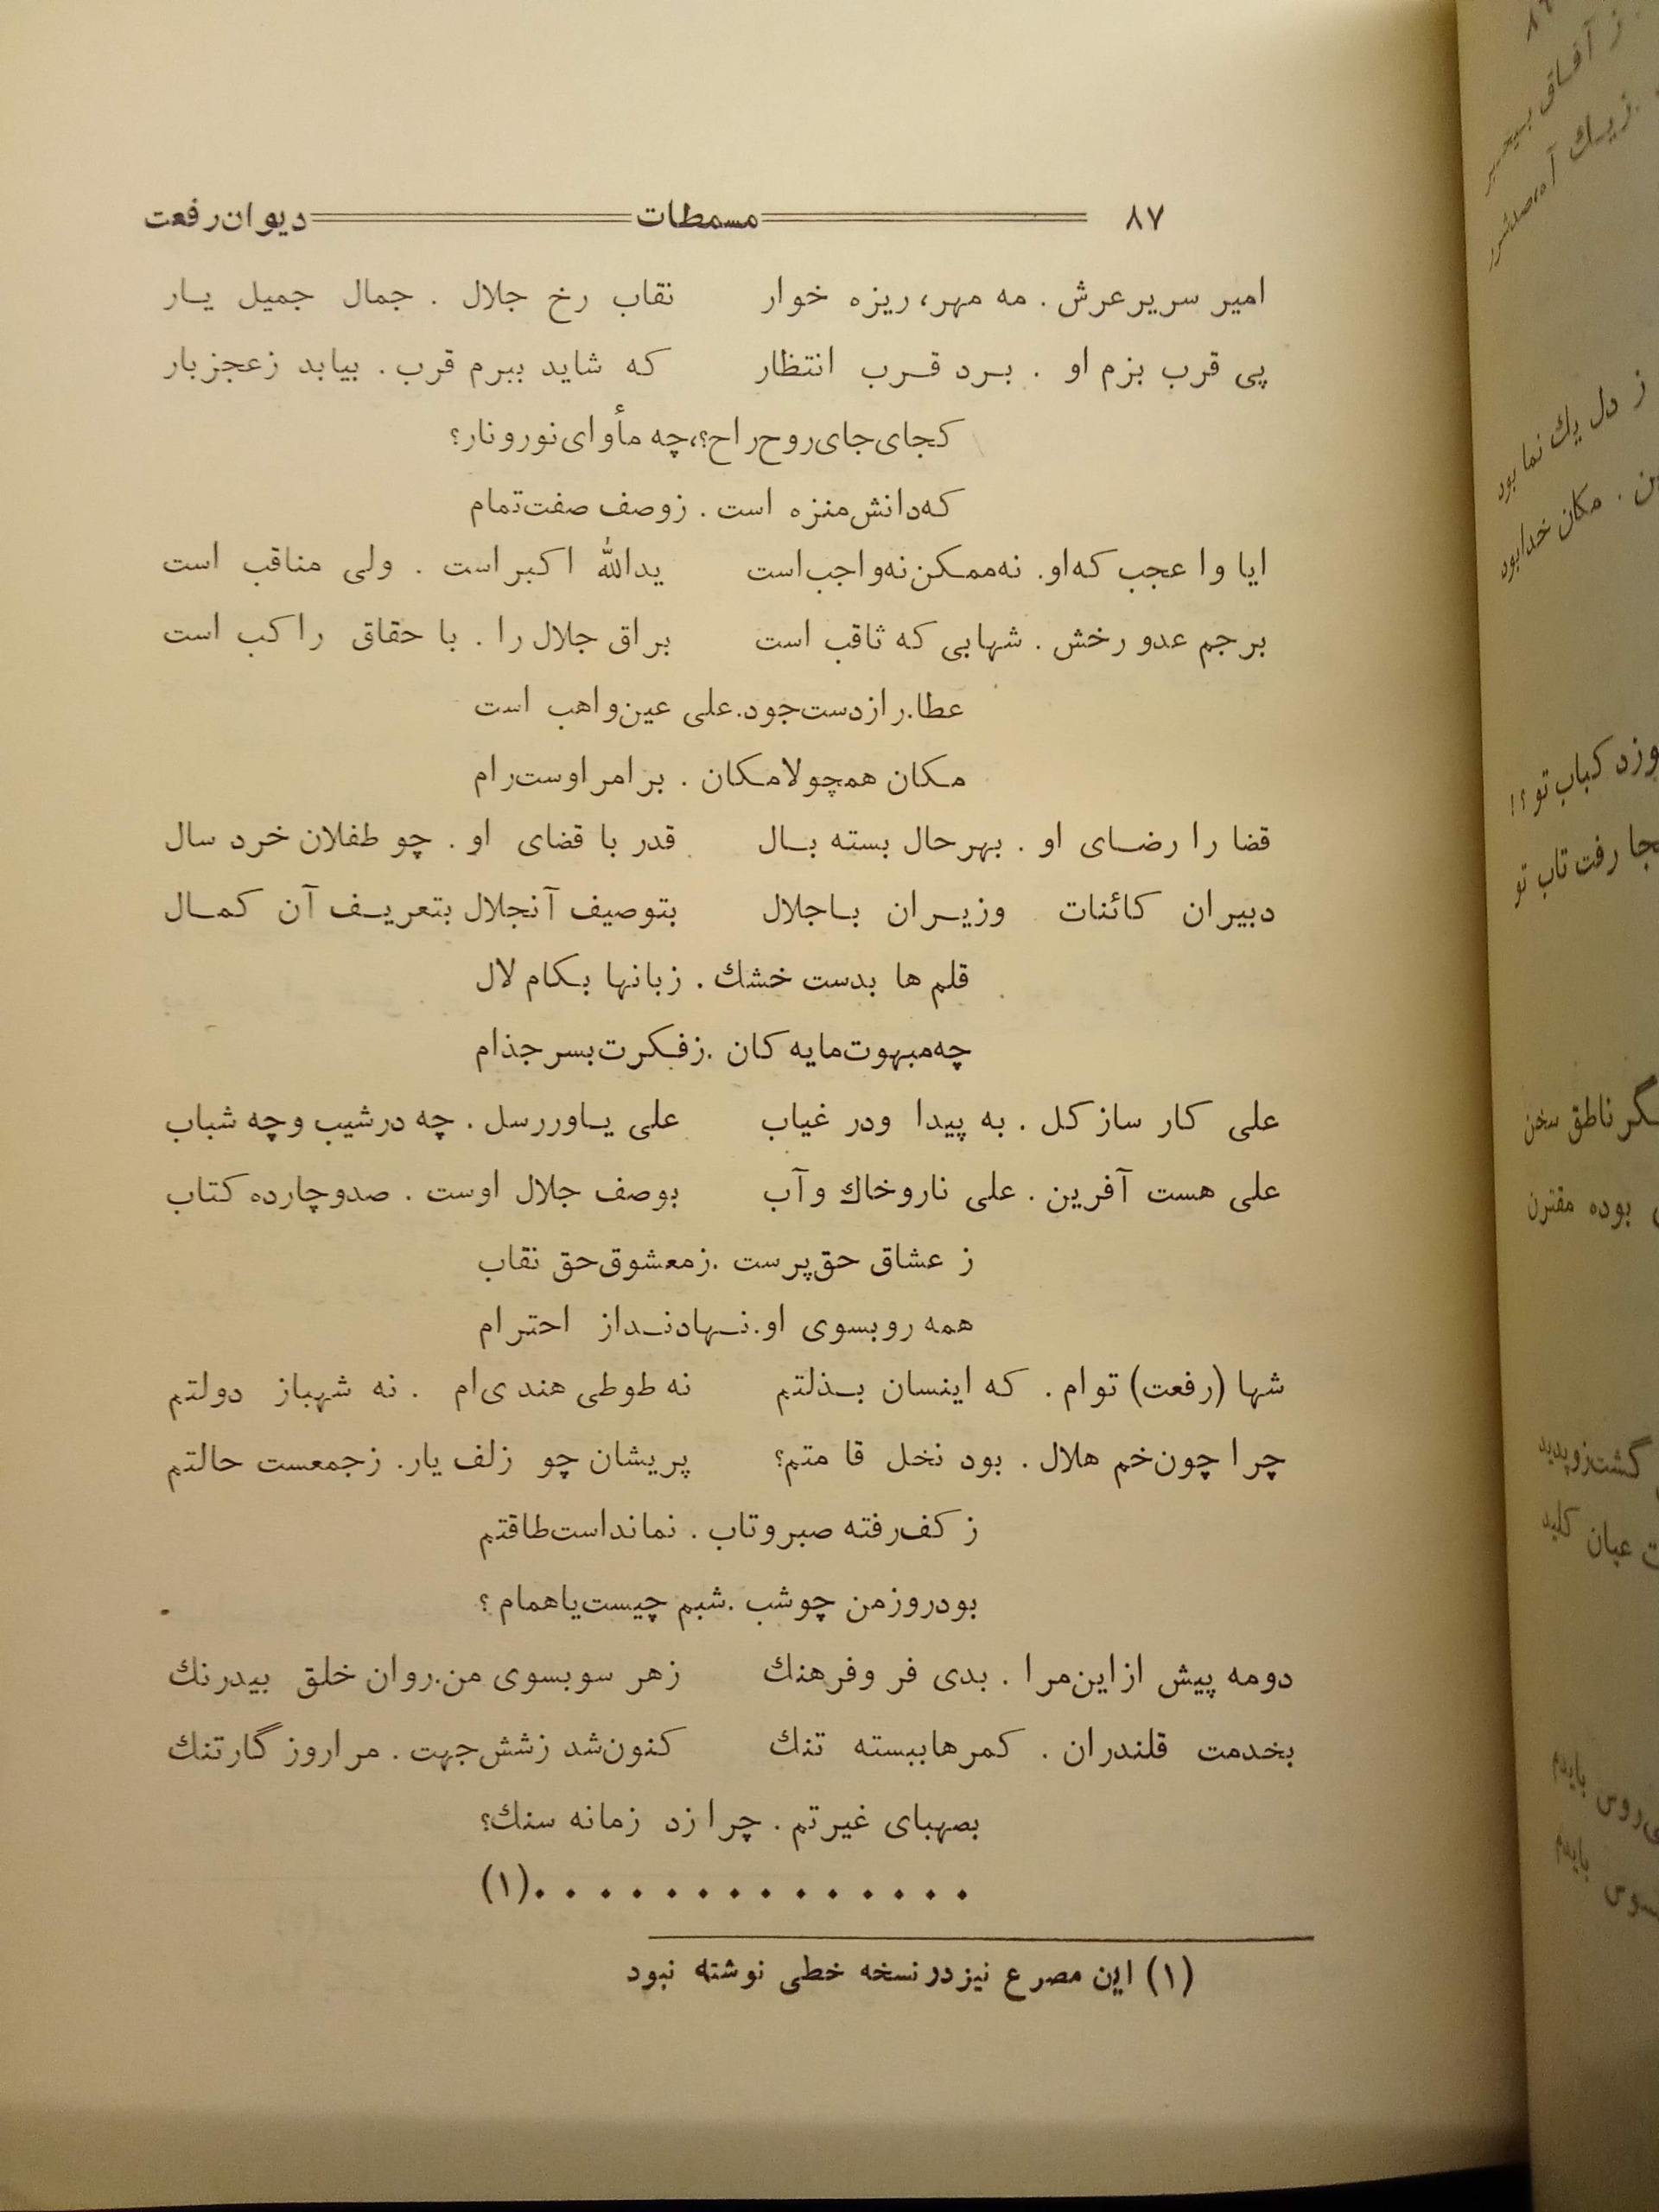 ۸۷ مسمطات دیوان رفعت
امیر سریر عرش . مه مهر، ریزه خوار نقاب رخ جلال . جمال جمیل یار
پی قرب بزم او . برد قرب انتظار که شاید ببرم قرب . بیابد زعجز بار
کجای جای روح راح؟، چه مأوای نور و نار؟
که دانش منزه است . زوصف صفت تمام
ایا وا عجب که او . نه ممکن نه واجب است یدالله اکبر است . ولی مناقب است
بر جم عدو رخش . شهابی که ثاقب است براق جلال را . با حقاق راکب است
عطا . راز دست جود . علی عین واهب است
مکان همچو لامکان . بر امر اوست رام
قضا را رضای او . بهر حال بسته بال قدر با قضای او . چو طفلان خرد سال
دبیران کائنات وزیران باجلال بتوصیف آنجلال بتعریف آن کمال
قلم ها بدست خشك . زبانها بکام لال
چه مبهوت مایه کان . زفکرت بسر جذام
علی کار ساز کل . به پیدا ودر غیاب علی یاور رسل . چه در شیب وچه شباب
علی هست آفرین . علی نار وخاك وآب بوصف جلال اوست . صدو چارده کتاب
ز عشاق حق پرست . زمعشوق حق نقاب
همه رو بسوی او . نهادند از احترام
شها (رفعت) توام . که اینسان بذلتم نه طوطی هندی ام . نه شهباز دولتم
چرا چون خم هلال . بود نخل قا متم؟ پریشان چو زلف یار . زجمعست حالتم
ز کف رفته صبر وتاب . نمانداست طاقتم
بود روز من چو شب . شبم چیست یا همام ؟
دومه پیش از این مرا . بدی فر وفرهنك زهر سو بسوی من . روان خلق بیدرنك
بخدمت قلندران . کمرها ببسته تنك کنون شد زشش جهت . مرا روز گار تنك
بصهبای غیرتم . چرا زد زمانه سنك؟
. . . . . . . . . . . . . . (۱)
(۱) این مصرع نیز در نسخه خطی نوشته نبود